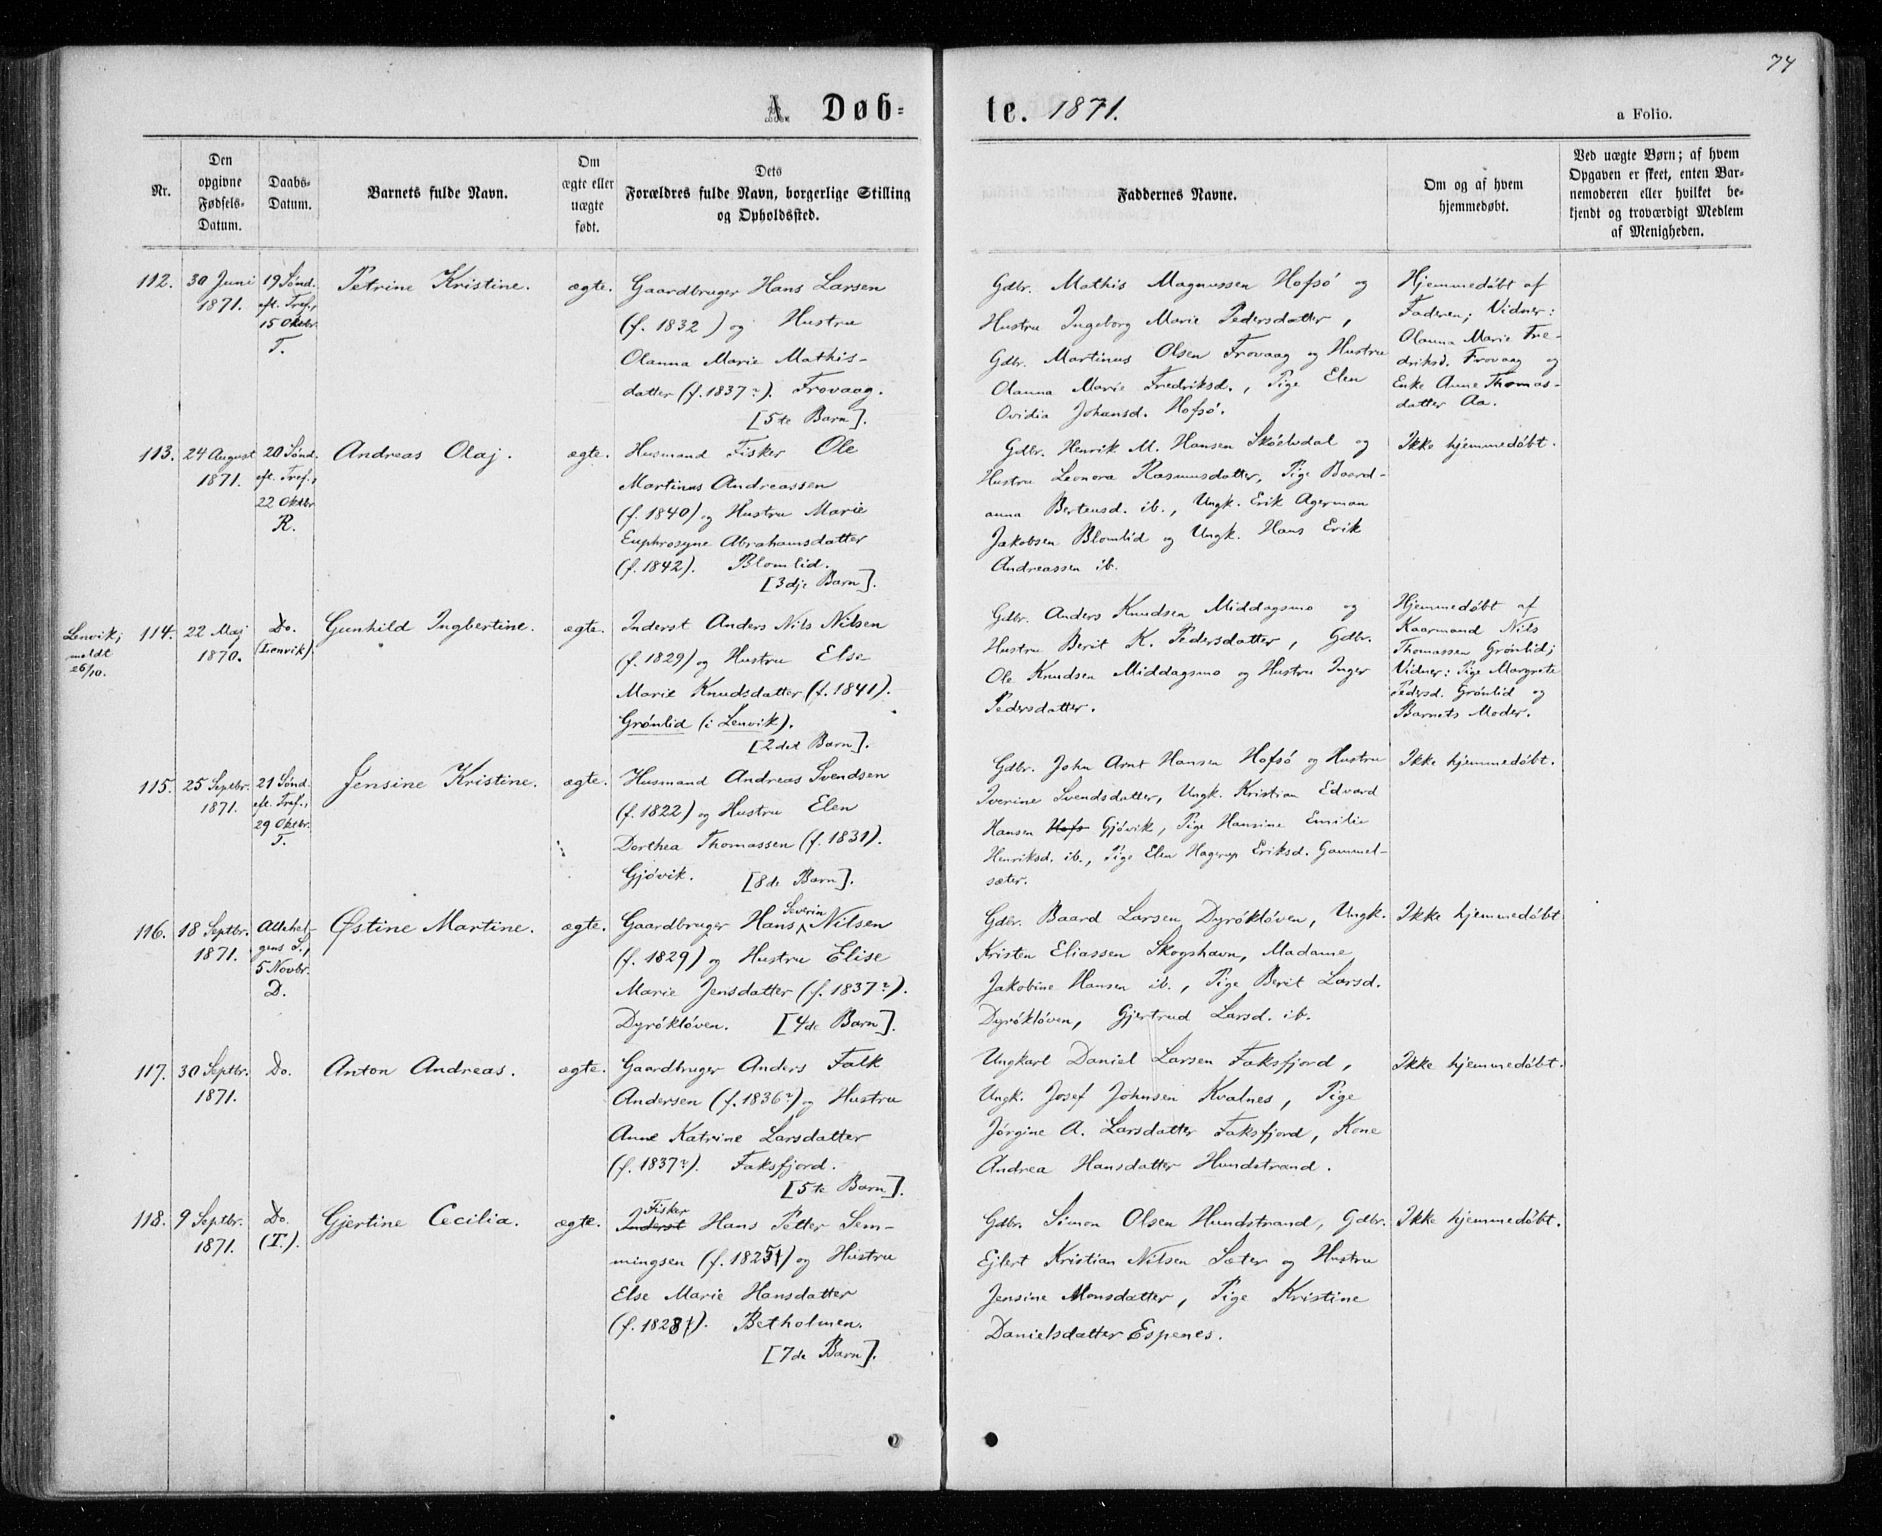 74
A. Døb-
te. 1871.
a Folio.
Nr.
Den
opgivne
Fødsels-
Datum.
Daabs-
Datum.
Barnets fulde Navn.
Om
ægte eller
uægte
født.
Dets
Forældres fulde Navn, borgerlige Stilling
og Opholdssted.
Faddernes Navne.
Om og af hvem
hjemmedøbt.
Ved uægte Børn; af hvem
Opgaven er skeet, enten Bar-
nemoderen eller hvilket be-
kjendt og troværdigt Medlem
af Menigheden.
112.
30 Juni
1871.
19 Sønd.
eft. Tref.,
15 Oktbr.
T.
Petrine Kristine.
ægte.
Gaardbruger Hans Larsen
(f. 1832) og Hustru
Olanna Marie Mathis-
datter (f. 1837?). Frovaag.
[5te Barn].
Gdbr. Mathis Magnussen Hofsø og
Hustru Ingeborg Marie Pedersdatter,
Gdbr. Martinus Olsen Frovaag og Hustru
Olanna Marie Fredriksd., Pige Elen
Ovidia Johansd. Hofsø.
Hjemmedøbt af
Faderen; Vidner:
Olanna Marie Fre-
driksd. Frovaag og
Enke Anne Thomas-
datter Aa.
113.
24 August
1871.
20 Sønd.
eft. Tref.,
22 Oktbr
R.
Andreas Olaj.
ægte.
Husmand Fisker Ole
Martinus Andreassen
(f. 1840) og Hustru Marie
Euphrosyne Abrahamsdatter
(f. 1842). Blomlid.
[3dje Barn].
Gdbr. Henrik M. Hansen og
Hustru Leonora Rasmusdatter, Pige Baard-
anna Bertensd. ib., Ungk. Erik Agerman
Jakobsen Blomlid og Ungk. Hans Erik
Andreassen ib.
Ikke hjemmedøbt.
Lenvik;
meldt
26/10.
114.
22 Maj
1870.
Do.
(Lenvik).
Gunhild Ingbertine.
ægte.
Inderst Anders Nils Nilsen
(f. 1829) og Hustru Else
Marie Knudsdatter (f. 1841).
Grønlid (i Lenvik).
[2det Barn].
Gdbr. Anders Knudsen Middagsmo og
Hustru Berit K. Pedersdatter, Gdbr.
Ole Knudsen Middagsmo og Hustru Inger
Pedersdatter.
Hjemmedøbt af
Kaarmand Nils
Thomassen Grønlid;
Vidner: Pige Margrete
Pedersd. Grønlid og
Barnets Moder.
115.
25 Septbr.
1871.
21 Sønd.
eft. Tref.,
29 Oktbr.
T.
Jensine Kristine.
ægte.
Husmand Andreas Svendsen
(f. 1822) og Hustru Elen
Dorthea Thomassen (f. 1831).
Gjøvik. [8de Barn].
Gdbr. John Arnt Hansen Hofsø og Hustru
Iverine Svendsdatter, Ungk. Kristian Edvard
Hansen Hofs Gjøvik, Pige Hansine Emilie
Henriksd. ib., Pige Elen Hagerup Eriksd. Gammel-
sæter.
Ikke hjemmedøbt.
116.
18 Septbr.
1871.
Allehel-
gens S.,
5 Novbr.
D.
Østine Martine.
ægte.
Gaardbruger Hans Severin Nilsen
(f. 1829) og Hustru Elise
Marie Jensdatter (f. 1837?).
Dyrøkløven. [4de Barn].
Gdbr. Baard Larsen Dyrøkløven, Ungk.
Kristen Eliassen Skogshavn, Madame
Jakobine Hansen ib., Pige Berit Larsd.
Dyrøkløven, Gjertrud Larsd. ib.
Ikke hjemmedøbt
117.
30 Septbr.
1871.
Do.
Anton Andreas.
ægte.
Gaardbruger Anders Falk
Andersen (f. 1836?) og Hustru
Anne Katrine Larsdatter
(f. 1837?). Faksfjord.
[5te Barn].
Ungkarl Daniel Larsen Faksfjord,
Ungk. Josef Johnsen Kvalnes, Pige
Jørgine A. Larsdatter Faksfjord, Kone
Andrea Hansdatter Hundstrand.
Ikke hjemmedøbt.
118.
9 Septbr.
1871.
Do.
(T.).
Gjertine Cecilia.
ægte.
Fisker
Inderst Hans Petter Sem-
mingsen (f. 1825) og Hustru
Else Marie Hansdatter
(f. 1828). Betholmen.
[7de Barn].
Gdbr. Simon Olsen Hundstrand, Gdbr.
Ejlert Kristian Nilsen Sæter og Hustru
Jensine Monsdatter, Pige Kristine
Danielsdatter Espenes.
Ikke hjemmedøbt.